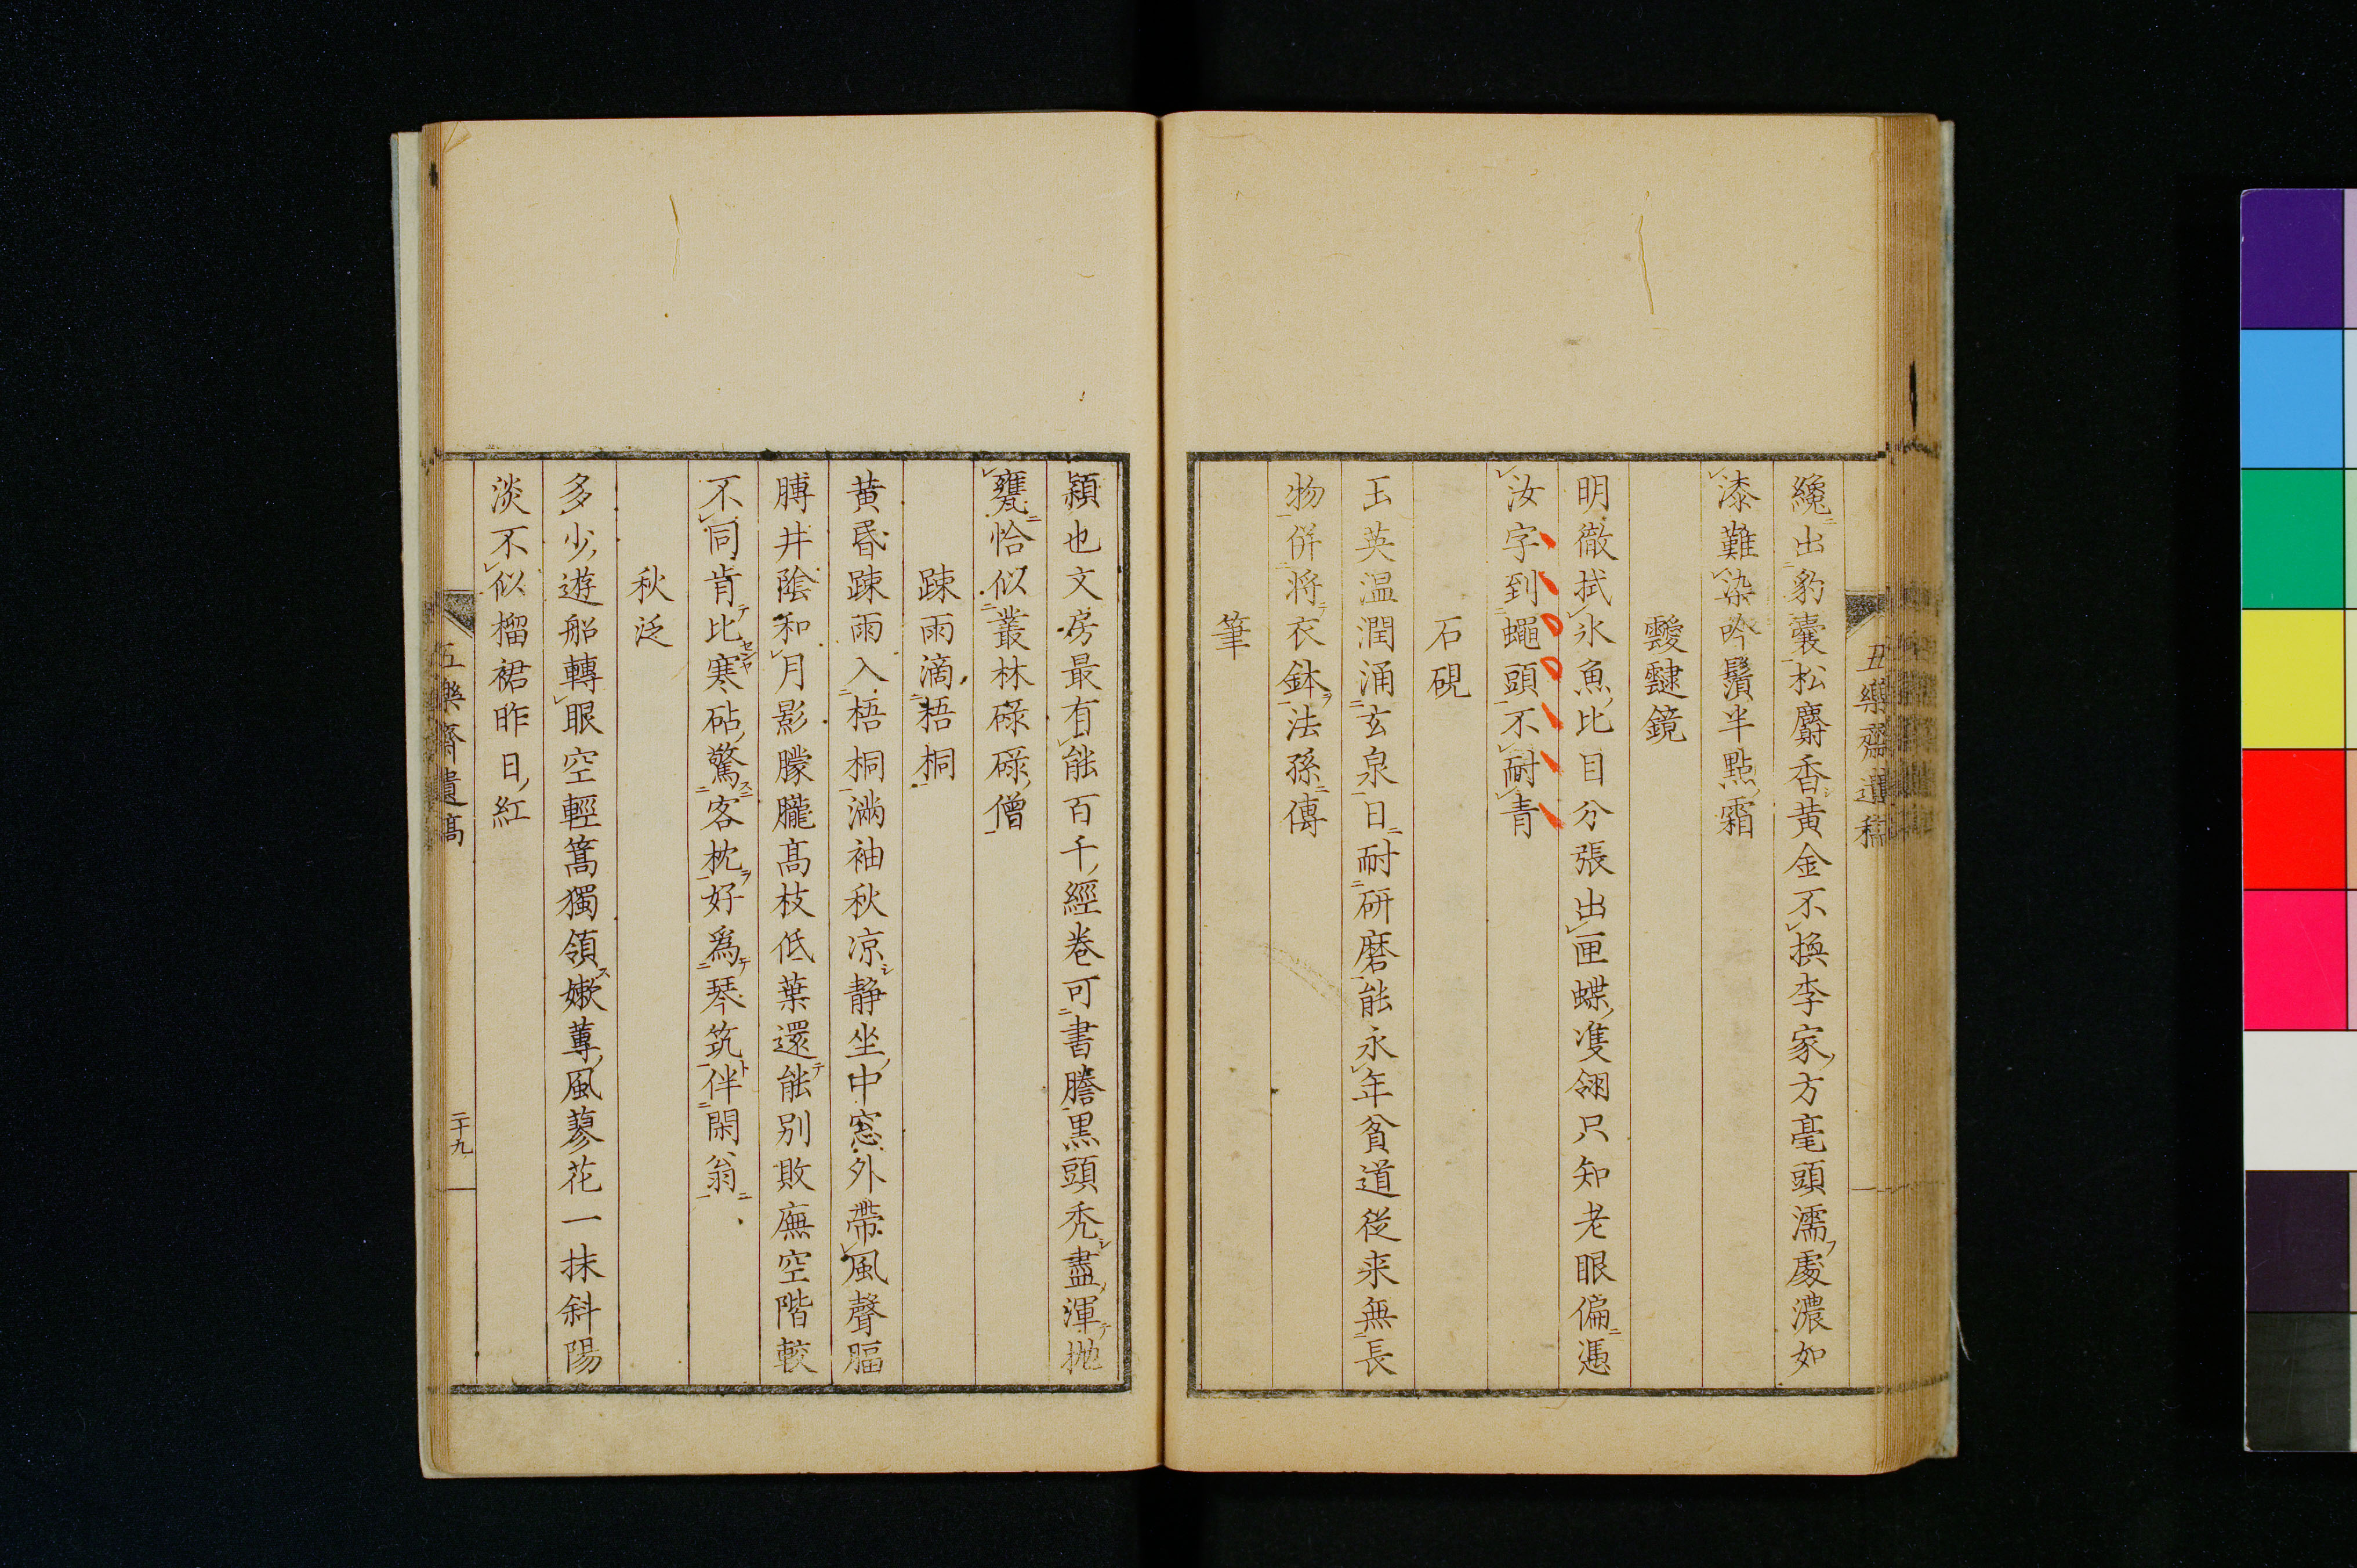 纔出豹囊松麝香黄金不換李家方毫頭濡處濃如
漆難染吟鬚半點霜
靉靆鏡
明徹拭氷魚比目分張出匣蝶隻翎只知老眼偏憑
汝字到蠅頭不耐青
石硯
玉英温潤涌玄泉日耐研磨能永年貧道従来無長
物併将衣鉢法孫傳
筆
穎也文房最有能百千經巻可書謄黒頭禿盡渾抛
甕恰似叢林碌碌僧
踈雨滴梧桐
黄昏踈雨入梧桐滿袖秋凉静坐中窓外帶風聲腷
膊井陰和月影朦朧髙枝低葉還能別敗廡空階較
不同肯比寒砧驚客枕好爲琴筑伴閑翁
秋泛
多少遊船轉眼空輕篙獨領嫩蓴風蓼花一抹斜陽
淡不似榴裙昨日紅
五樂齋遺稿
二十九